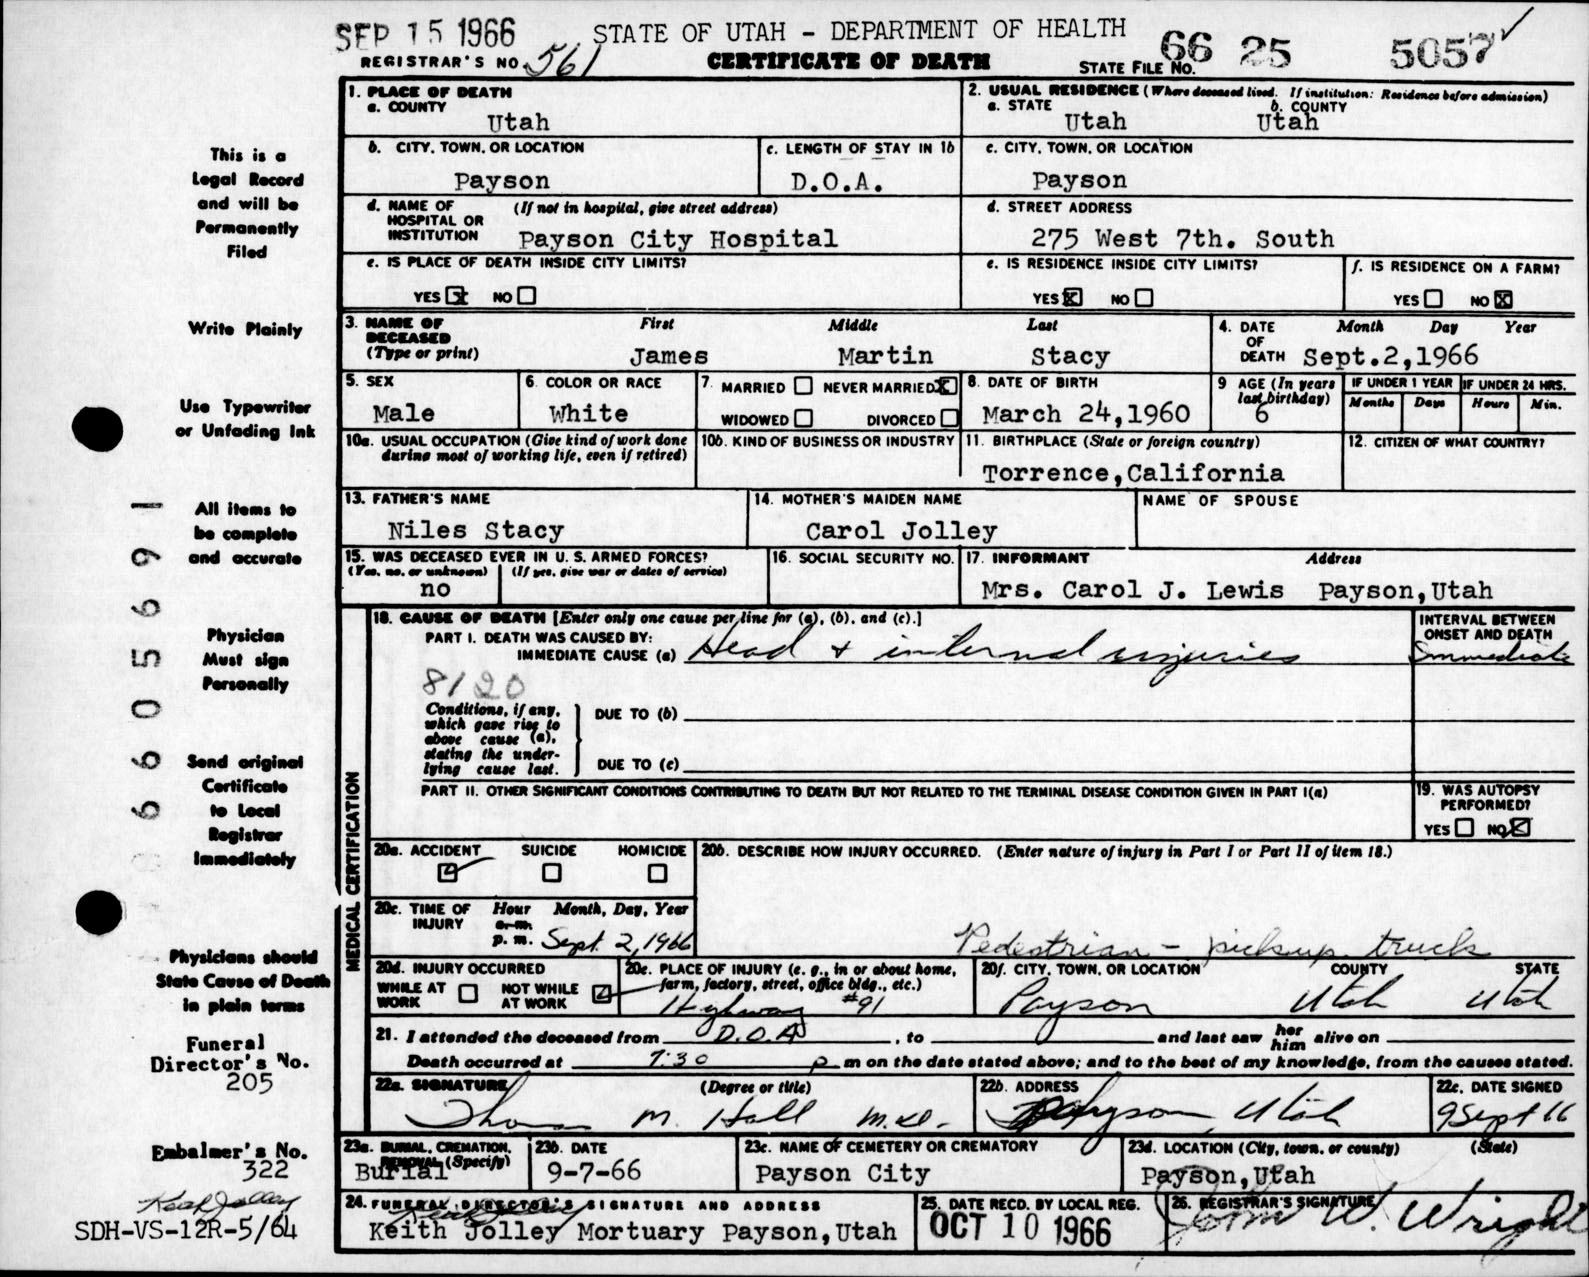 SEP 15 1966
STATE OF UTAH - DEPARTMENT OF HEALTH
REGISTRAR'S NO. 561
CERTIFICATE OF DEATH
STATE FILE NO. 66 25 5057
This is a
Legal Record
and will be
Permanently
Filed
Write Plainly
Use Typewriter
or Unfading Ink
All items to
be complete
and accurate
Physician
Must sign
Personally
Send original
Certificate
to Local
Registrar
Immediately
Physicians should
State Cause of Death
in plain terms
Funeral
Director's No.
205
Embalmer's No.
322
Keith Jolley
SDH-VS-12R-5/64
1. PLACE OF DEATH
a. COUNTY
Utah
2. USUAL RESIDENCE (Where deceased lived. If institution: Residence before admission)
a. STATE b. COUNTY
Utah Utah
b. CITY, TOWN, OR LOCATION
Payson
c. LENGTH OF STAY IN 1b
D.O.A.
c. CITY, TOWN, OR LOCATION
Payson
d. NAME OF HOSPITAL OR INSTITUTION (If not in hospital, give street address)
Payson City Hospital
d. STREET ADDRESS
275 West 7th. South
e. IS PLACE OF DEATH INSIDE CITY LIMITS?
YES X NO
e. IS RESIDENCE INSIDE CITY LIMITS?
YES X NO
f. IS RESIDENCE ON A FARM?
YES NO X
3. NAME OF DECEASED (Type or print)
First Middle Last
James Martin Stacy
4. DATE OF DEATH
Month Day Year
Sept.2,1966
5. SEX
Male
6. COLOR OR RACE
White
7. MARRIED NEVER MARRIED X
WIDOWED DIVORCED
8. DATE OF BIRTH
March 24,1960
9 AGE (In years last birthday)
6
IF UNDER 1 YEAR
Months Days
IF UNDER 24 HRS.
Hours Min.
10a. USUAL OCCUPATION (Give kind of work done during most of working life, even if retired)
10b. KIND OF BUSINESS OR INDUSTRY
11. BIRTHPLACE (State or foreign country)
Torrence,California
12. CITIZEN OF WHAT COUNTRY?
13. FATHER'S NAME
Niles Stacy
14. MOTHER'S MAIDEN NAME
Carol Jolley
NAME OF SPOUSE
15. WAS DECEASED EVER IN U. S. ARMED FORCES?
(Yes, no, or unknown) (If yes, give war or dates of service)
no
16. SOCIAL SECURITY NO.
17. INFORMANT Address
Mrs. Carol J. Lewis Payson,Utah
MEDICAL CERTIFICATION
18. CAUSE OF DEATH [Enter only one cause per line for (a), (b), and (c).]
PART I. DEATH WAS CAUSED BY:
IMMEDIATE CAUSE (a) Head + internal injuries
INTERVAL BETWEEN ONSET AND DEATH
Immediate
8120
Conditions, if any, which gave rise to above cause (a), stating the underlying cause last.
DUE TO (b)
DUE TO (c)
PART II. OTHER SIGNIFICANT CONDITIONS CONTRIBUTING TO DEATH BUT NOT RELATED TO THE TERMINAL DISEASE CONDITION GIVEN IN PART I(a)
19. WAS AUTOPSY PERFORMED?
YES NO X
20a. ACCIDENT SUICIDE HOMICIDE
20b. DESCRIBE HOW INJURY OCCURRED. (Enter nature of injury in Part I or Part II of item 18.)
Pedestrian - pickup truck
20c. TIME OF INJURY
Hour Month, Day, Year
a.m.
p. m. Sept. 2, 1966
20d. INJURY OCCURRED
WHILE AT WORK NOT WHILE AT WORK
20e. PLACE OF INJURY (e. g., in or about home, farm, factory, street, office bldg., etc.)
Highway #91
20f. CITY, TOWN, OR LOCATION COUNTY STATE
Payson Utah Utah
21. I attended the deceased from D.O.A , to and last saw her him alive on
Death occurred at 7:30 p m on the date stated above; and to the best of my knowledge, from the causes stated.
22a. SIGNATURE (Degree or title)
Thomas M. Hall M.D.
22b. ADDRESS
Payson, Utah
22c. DATE SIGNED
9 Sept 66
23a. BURIAL, CREMATION, REMOVAL (Specify)
Burial
23b. DATE
9-7-66
23c. NAME OF CEMETERY OR CREMATORY
Payson City
23d. LOCATION (City, town, or county) (State)
Payson,Utah
24. FUNERAL DIRECTOR'S SIGNATURE AND ADDRESS
Keith Jolley Mortuary Payson,Utah
25. DATE RECD. BY LOCAL REG.
OCT 10 1966
26. REGISTRAR'S SIGNATURE
John W. Wright